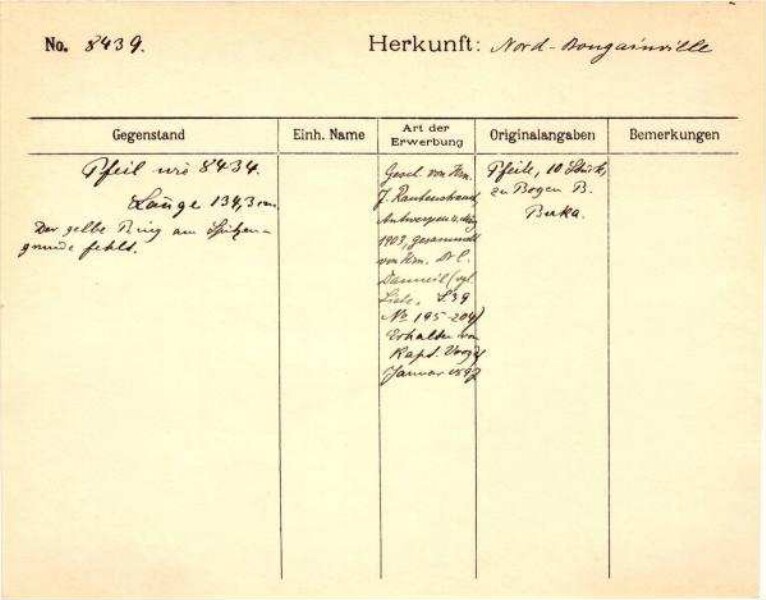 No. 8439. Herkunft: Nord-Bougainville
Gegenstand Einh. Name Art der Erwerbung Originalangaben Bemerkungen
Pfeil wie 8434.
Länge 134,3 cm.
Der gelbe Ring am Spitzen-
grunde fehlt.
Gesch. von Hrn.
J. Rautenstrauch,
Antwerpen 4. März
1903, gesammelt
von Hrn. Dr C.
Danneil (vgl.
Liste, S. 39
No 195-204)
Erhalten von
Kapt. Voogdt
Januar 1897
Pfeile, 10 Stück,
zu Bogen B.
Buka.